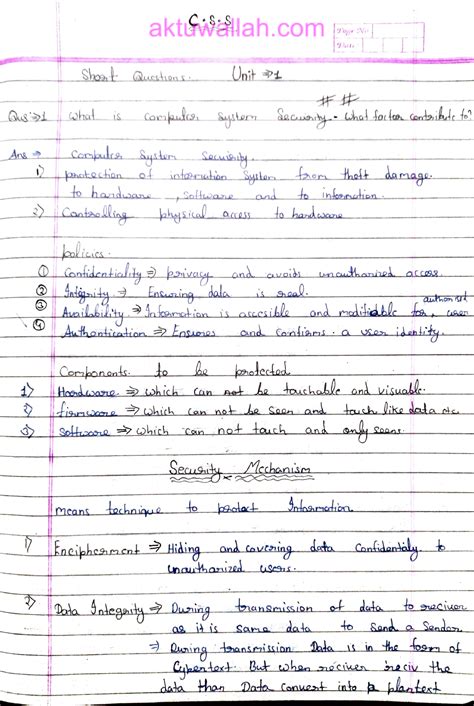 C.S.S
aktuwallah.com
Page No.
Date
Short Questions. Unit ⇒ 1
##
Qus:⇒1 What is computer System Security. - What factor contribute to?
Ans ⇒ Computer System security.
1) protection of information System from theft damage.
to hardware, software and to information.
2) Controlling physical access to hardware
policies.
① Confidentiality ⇒ privacy and avoids unauthorized access.
② Integrity ⇒ Ensuring data is real.
authorized
③ Availability ⇒ Information is accesible and modifiable for, user
④ Authentication ⇒ Ensures and confirms a user identity.
Components to be protected
1) Hardware ⇒ which can not be touchable and visuable.
2) firmware ⇒ which can not be seen and touch like data etc.
3) Software ⇒ which can not touch and only seen.
Security Mechanism
means technique to protect Information
1) Encipherment ⇒ Hiding and covering data confidentaly to
unauthorized users.
2) Data Integrity ⇒ During transmission of data to reciver
as it is same data to send a Sendor.
⇒ During transmission Data is in the form of
Cypertext. But when reciver reciv the
data than Data convert into plantext